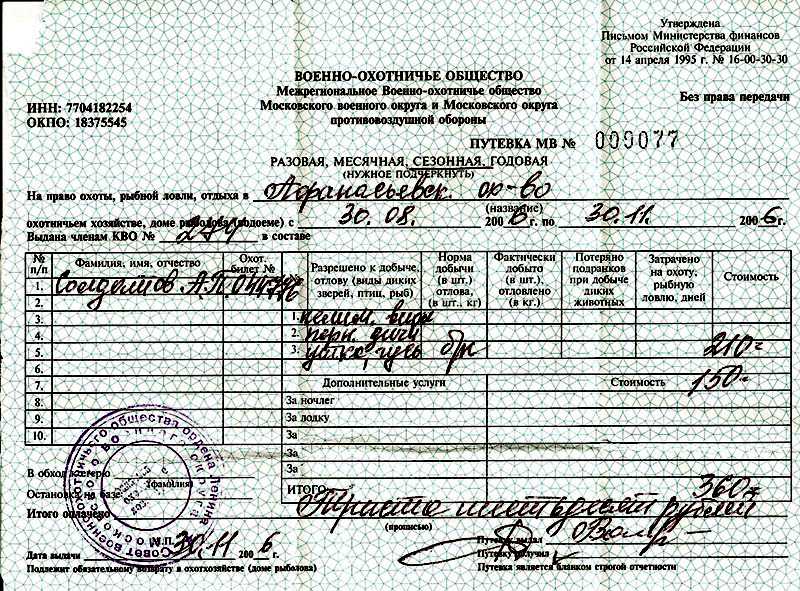 Утверждена
Письмом Министерства финансов
Российской Федерации
от 14 апреля 1995 г. № 16-00-30-30
ВОЕННО-ОХОТНИЧЬЕ ОБЩЕСТВО
Межрегиональное Военно-охотничье общество
Московского военного округа и Московского округа
противовоздушной обороны
ИНН: 7704182254
ОКПО: 18375545
Без права передачи
ПУТЕВКА МВ № 009077
РАЗОВАЯ, МЕСЯЧНАЯ, СЕЗОННАЯ, ГОДОВАЯ
(НУЖНОЕ ПОДЧЕРКНУТЬ)
На право охоты, рыбной ловли, отдыха в Афанасьевск. ох-во
(название)
охотничьем хозяйстве, доме рыболова (водоеме) с 30.08. 2006 г. по 30.11. 2006 г.
Выдана членам КВО № в составе
№ п/п Фамилия, имя, отчество Охот. билет № Разрешено к добыче, отлову (виды диких зверей, птиц, рыб) Норма добычи (в шт.) отлова, (в шт., кг) Фактически добыто (в шт.), отловлено (в кг) Потеряно подранков при добыче диких животных Затрачено на охоту, рыбную ловлю, дней Стоимость
1. Солдатов А.П.
2.
3. 1.
4. 2. перн. дичи
5. 3. утка, гусь 210-
6.
7. Дополнительные услуги Стоимость 150-
8. За ночлег
9. За лодку
10. За
За
За
В обход с егерю
(фамилия)
Остановка на базе
ИТОГО: 360-
Итого оплачено Триста шестьдесят рублей
(прописью)
Совет военно-охотничьего общества ордена Ленина Московского военного округа
М.П.
Путевку выдал
Дата выдачи 30.11 2006 г.
Путевку получил
Подлежит обязательному возврату в охотхозяйство (доме рыболова)
Путевка является бланком строгой отчетности